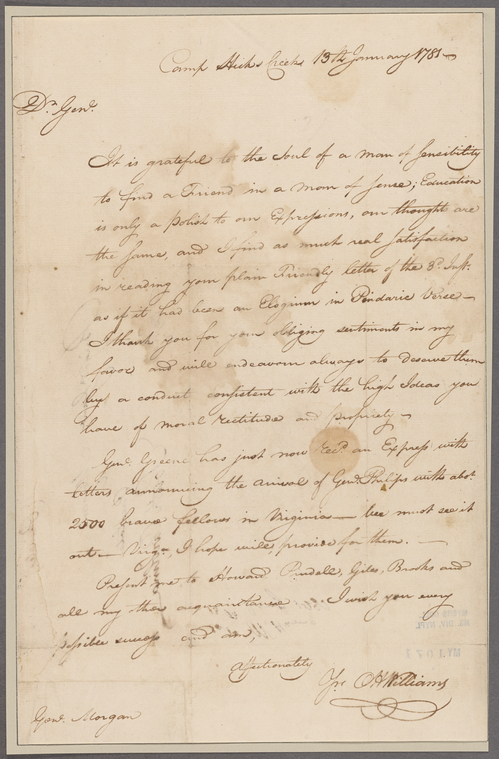 Camp Hicks Creek 13th January 1781
Dr. Genl.
It is grateful to the Soul of a man of Sensibility
to find a Friend in a man of sense; Education
is only a polish to our Expressions, our thought are
the same, and I find as much real satisfaction
in reading your plain Friendly letter of the 3d. Inst.
as if it had been an Elogium in Pindaric Verse—
I thank you for your obliging sentiments in my
favor and will endeavour always to deserve them
by a conduct consistent with the high Ideas you
have of moral rectitude and propriety—
Genl. Greene has just now recd. an Express with
letters announcing the arrival of Genl. Philips with abt.
2500 brave fellows in Virginia— We must see it
out— Virga. I hope will provide for them.—
Present me to Howard Pindell, Giles, Brooks and
all my other acquaintance. I wish you every
possible success and am,
Affectionately
Yrs. OHWilliams
Genl. Morgan